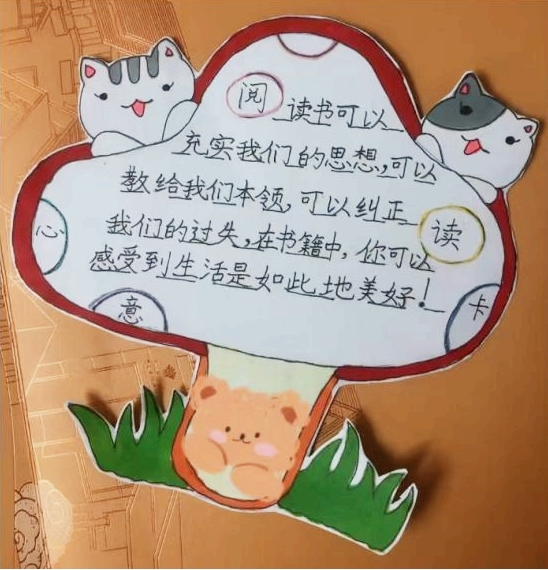 阅
读书可以
充实我们的思想,可以
教给我们本领,可以纠正
读
我们的过失,在书籍中,你可以
感受到生活是如此地美好!
心
意
卡